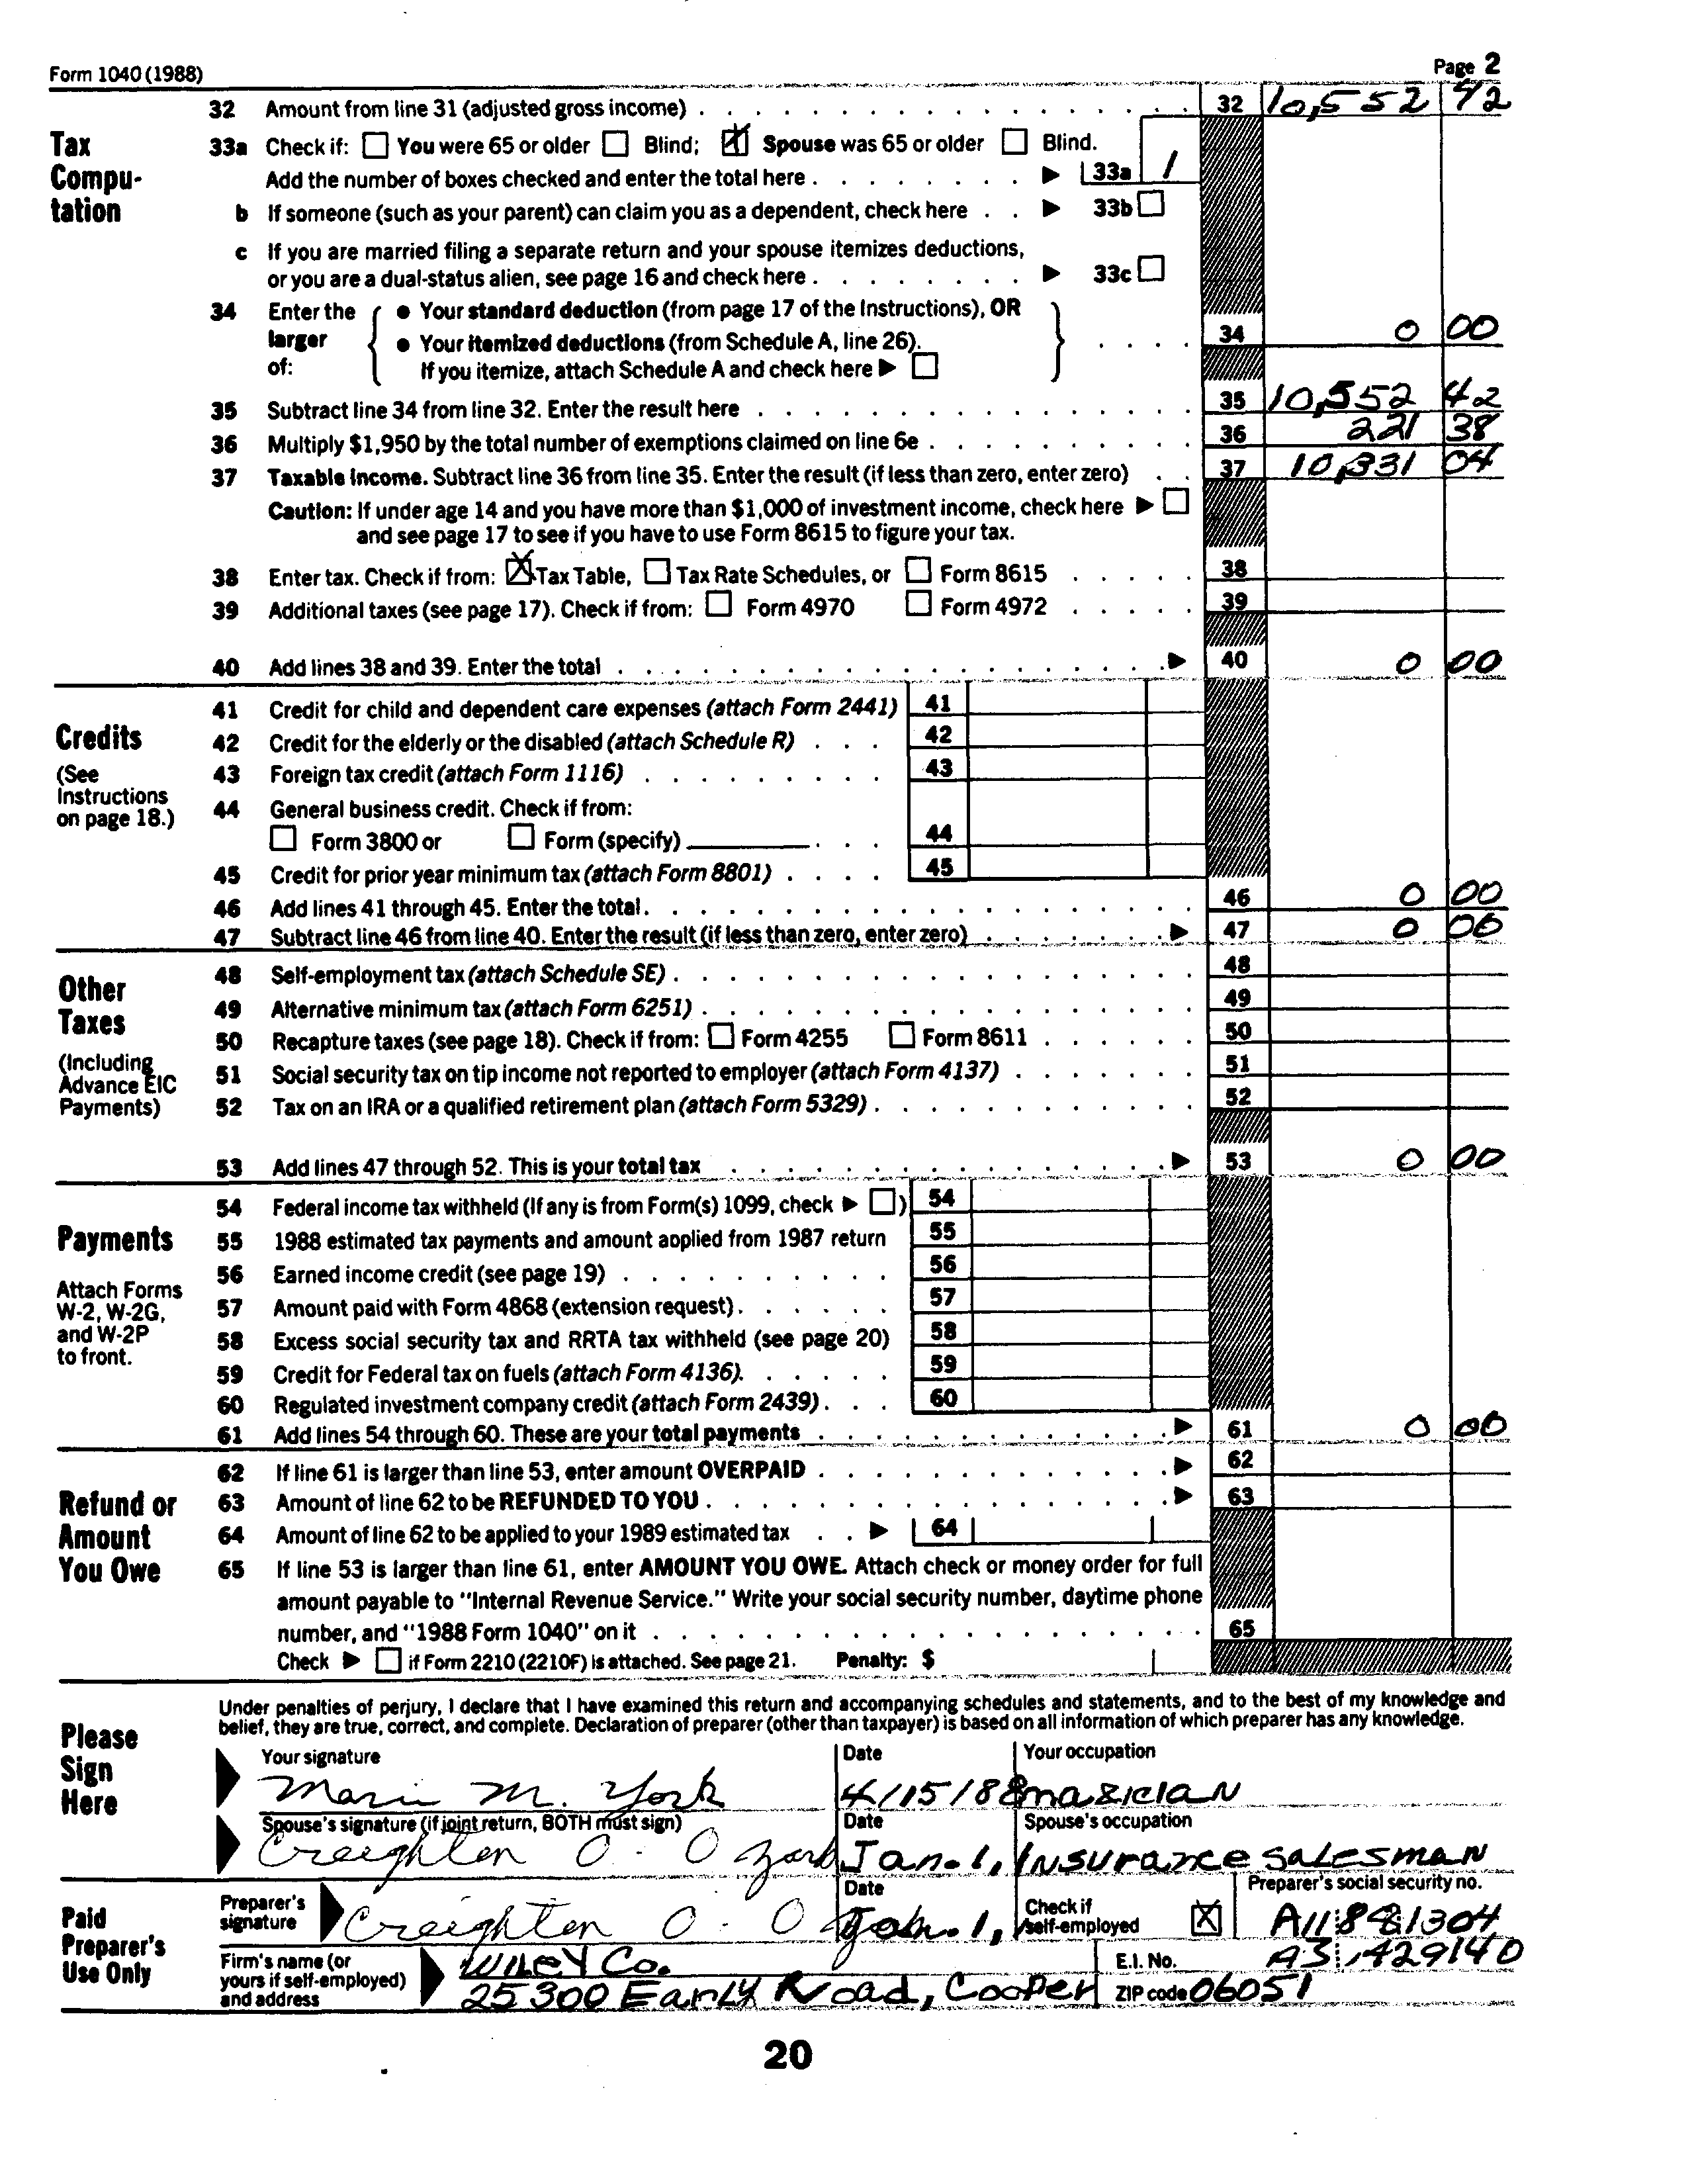 Form 1040 (1988) Page 2
32 Amount from line 31 (adjusted gross income) 32 10,552 42
Tax Compu-tation
33a Check if: You were 65 or older Blind; Spouse was 65 or older Blind.
Add the number of boxes checked and enter the total here 33a 1
b If someone (such as your parent) can claim you as a dependent, check here 33b
c If you are married filing a separate return and your spouse itemizes deductions,
or you are a dual-status alien, see page 16 and check here 33c
34 Enter the larger of: • Your standard deduction (from page 17 of the Instructions), OR
• Your itemized deductions (from Schedule A, line 26). 34 0 00
If you itemize, attach Schedule A and check here
35 Subtract line 34 from line 32. Enter the result here 35 10,552 42
36 Multiply $1,950 by the total number of exemptions claimed on line 6e 36 221 38
37 Taxable income. Subtract line 36 from line 35. Enter the result (if less than zero, enter zero) 37 10,331 04
Caution: If under age 14 and you have more than $1,000 of investment income, check here
and see page 17 to see if you have to use Form 8615 to figure your tax.
38 Enter tax. Check if from: Tax Table, Tax Rate Schedules, or Form 8615 38
39 Additional taxes (see page 17). Check if from: Form 4970 Form 4972 39
40 Add lines 38 and 39. Enter the total 40 0 00
Credits
(See Instructions on page 18.)
41 Credit for child and dependent care expenses (attach Form 2441) 41
42 Credit for the elderly or the disabled (attach Schedule R) 42
43 Foreign tax credit (attach Form 1116) 43
44 General business credit. Check if from:
Form 3800 or Form (specify) 44
45 Credit for prior year minimum tax (attach Form 8801) 45
46 Add lines 41 through 45. Enter the total. 46 0 00
47 Subtract line 46 from line 40. Enter the result (if less than zero, enter zero) 47 0 00
Other Taxes
(Including Advance EIC Payments)
48 Self-employment tax (attach Schedule SE) 48
49 Alternative minimum tax (attach Form 6251) 49
50 Recapture taxes (see page 18). Check if from: Form 4255 Form 8611 50
51 Social security tax on tip income not reported to employer (attach Form 4137) 51
52 Tax on an IRA or a qualified retirement plan (attach Form 5329) 52
53 Add lines 47 through 52. This is your total tax 53 0 00
Payments
Attach Forms W-2, W-2G, and W-2P to front.
54 Federal income tax withheld (If any is from Form(s) 1099, check ) 54
55 1988 estimated tax payments and amount applied from 1987 return 55
56 Earned income credit (see page 19) 56
57 Amount paid with Form 4868 (extension request) 57
58 Excess social security tax and RRTA tax withheld (see page 20) 58
59 Credit for Federal tax on fuels (attach Form 4136). 59
60 Regulated investment company credit (attach Form 2439) 60
61 Add lines 54 through 60. These are your total payments 61 0 00
Refund or Amount You Owe
62 If line 61 is larger than line 53, enter amount OVERPAID 62
63 Amount of line 62 to be REFUNDED TO YOU 63
64 Amount of line 62 to be applied to your 1989 estimated tax 64
65 If line 53 is larger than line 61, enter AMOUNT YOU OWE. Attach check or money order for full
amount payable to "Internal Revenue Service." Write your social security number, daytime phone
number, and "1988 Form 1040" on it 65
Check if Form 2210 (2210F) is attached. See page 21. Penalty: $
Please Sign Here
Under penalties of perjury, I declare that I have examined this return and accompanying schedules and statements, and to the best of my knowledge and
belief, they are true, correct, and complete. Declaration of preparer (other than taxpayer) is based on all information of which preparer has any knowledge.
Your signature Date Your occupation
Mari M. York 4/15/88 magician
Spouse's signature (if joint return, BOTH must sign) Date Spouse's occupation
Creighton O. Ozark Jan. 1, Insurance salesman
Paid Preparer's Use Only
Preparer's signature Date Check if self-employed Preparer's social security no.
Creighton O. Jan. 1,
Firm's name (or yours if self-employed) and address
Wiley Co. E.I. No.
25300 Early Road, Cooper ZIP code 06051
20